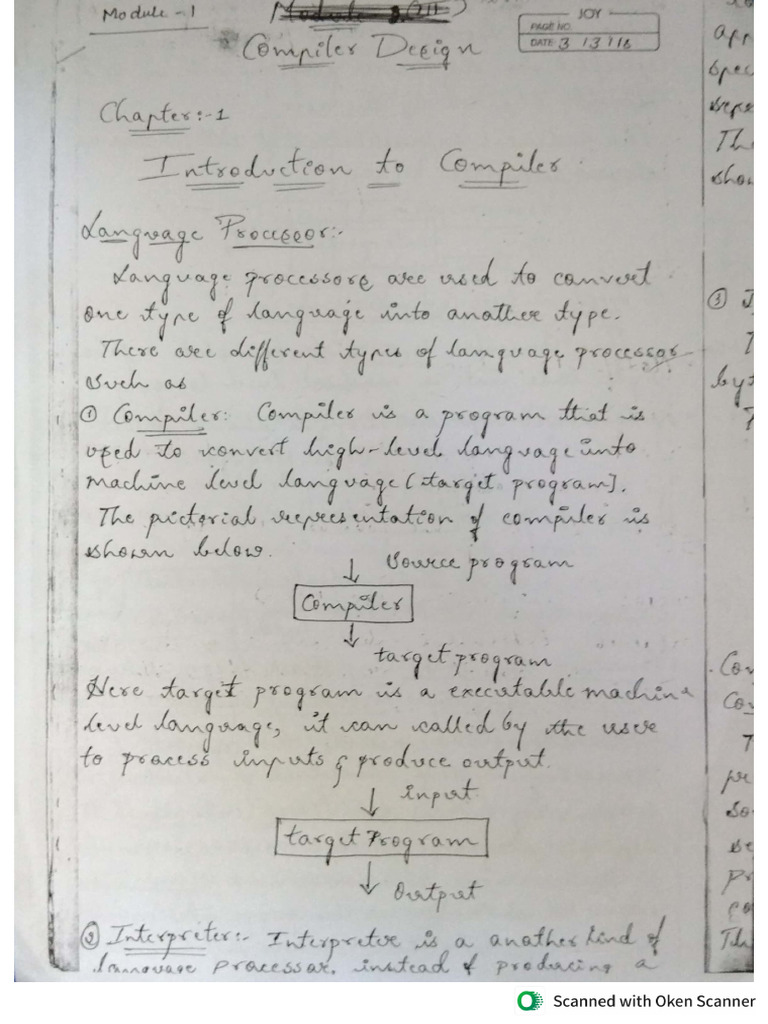 Module - 1
JOY
PAGE NO.
DATE 3 / 3 / 18
Compiler Design
Chapter:-1
Introduction to Compiler
Language Processor:-
Language processors are used to convert
one type of language into another type.
There are different types of language processor
such as
① Compiler: Compiler is a program that is
used to convert high-level language into
machine level language (target program).
The pictorial representation of compiler is
shown below.
Source program
Compiler
target program
Here target program is a executable machine
level language, it can called by the user
to process inputs & produce output.
input
target Program
Output
② Interpreter:- Interpreter is a another kind of
language processor. instead of producing a
Scanned with Oken Scanner